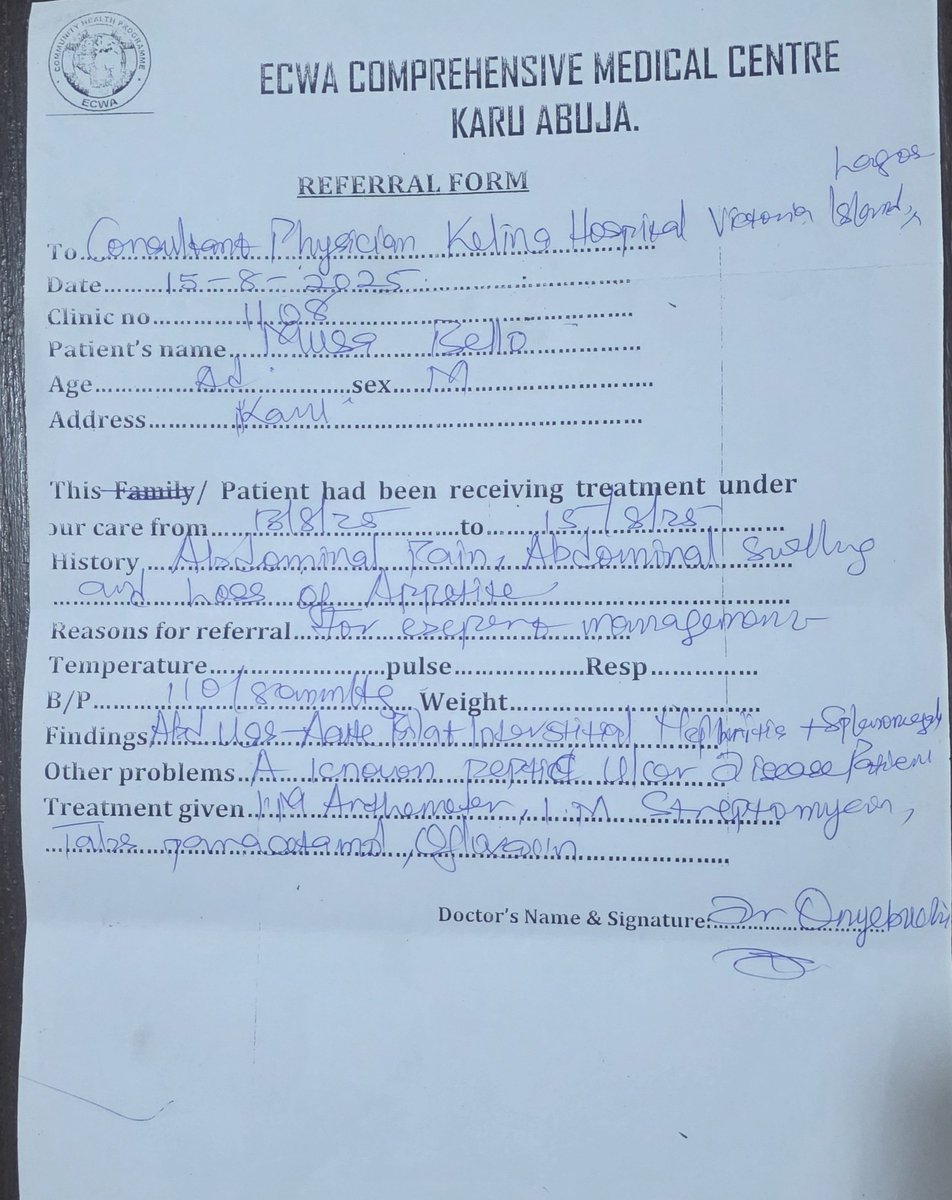 COMMUNITY HEALTH PROGRAMME
ECWA
ECWA COMPREHENSIVE MEDICAL CENTRE
KARU ABUJA.
REFERRAL FORM
Lagos
To Consultant Physician Kelina Hospital Victoria Island,
Date 15-8-2025
Clinic no 1108
Patient's name Musa Bello
Age Ad sex M
Address Karu
This Family/ Patient had been receiving treatment under
our care from 13/8/25 to 15/8/25
History Abdominal Pain, Abdominal Swelling
and Loss of Appetite
Reasons for referral For expert management
Temperature pulse Resp
B/P 110/80mmHg Weight
Findings Abd USS - Acute Bilat Interstitial Nephritis + Splenomegaly
Other problems A known peptic Ulcer Disease Patient
Treatment given I.M I.M Streptomycin,
Tabs paracetamol,
Doctor's Name & Signature Dr Onyebuchi